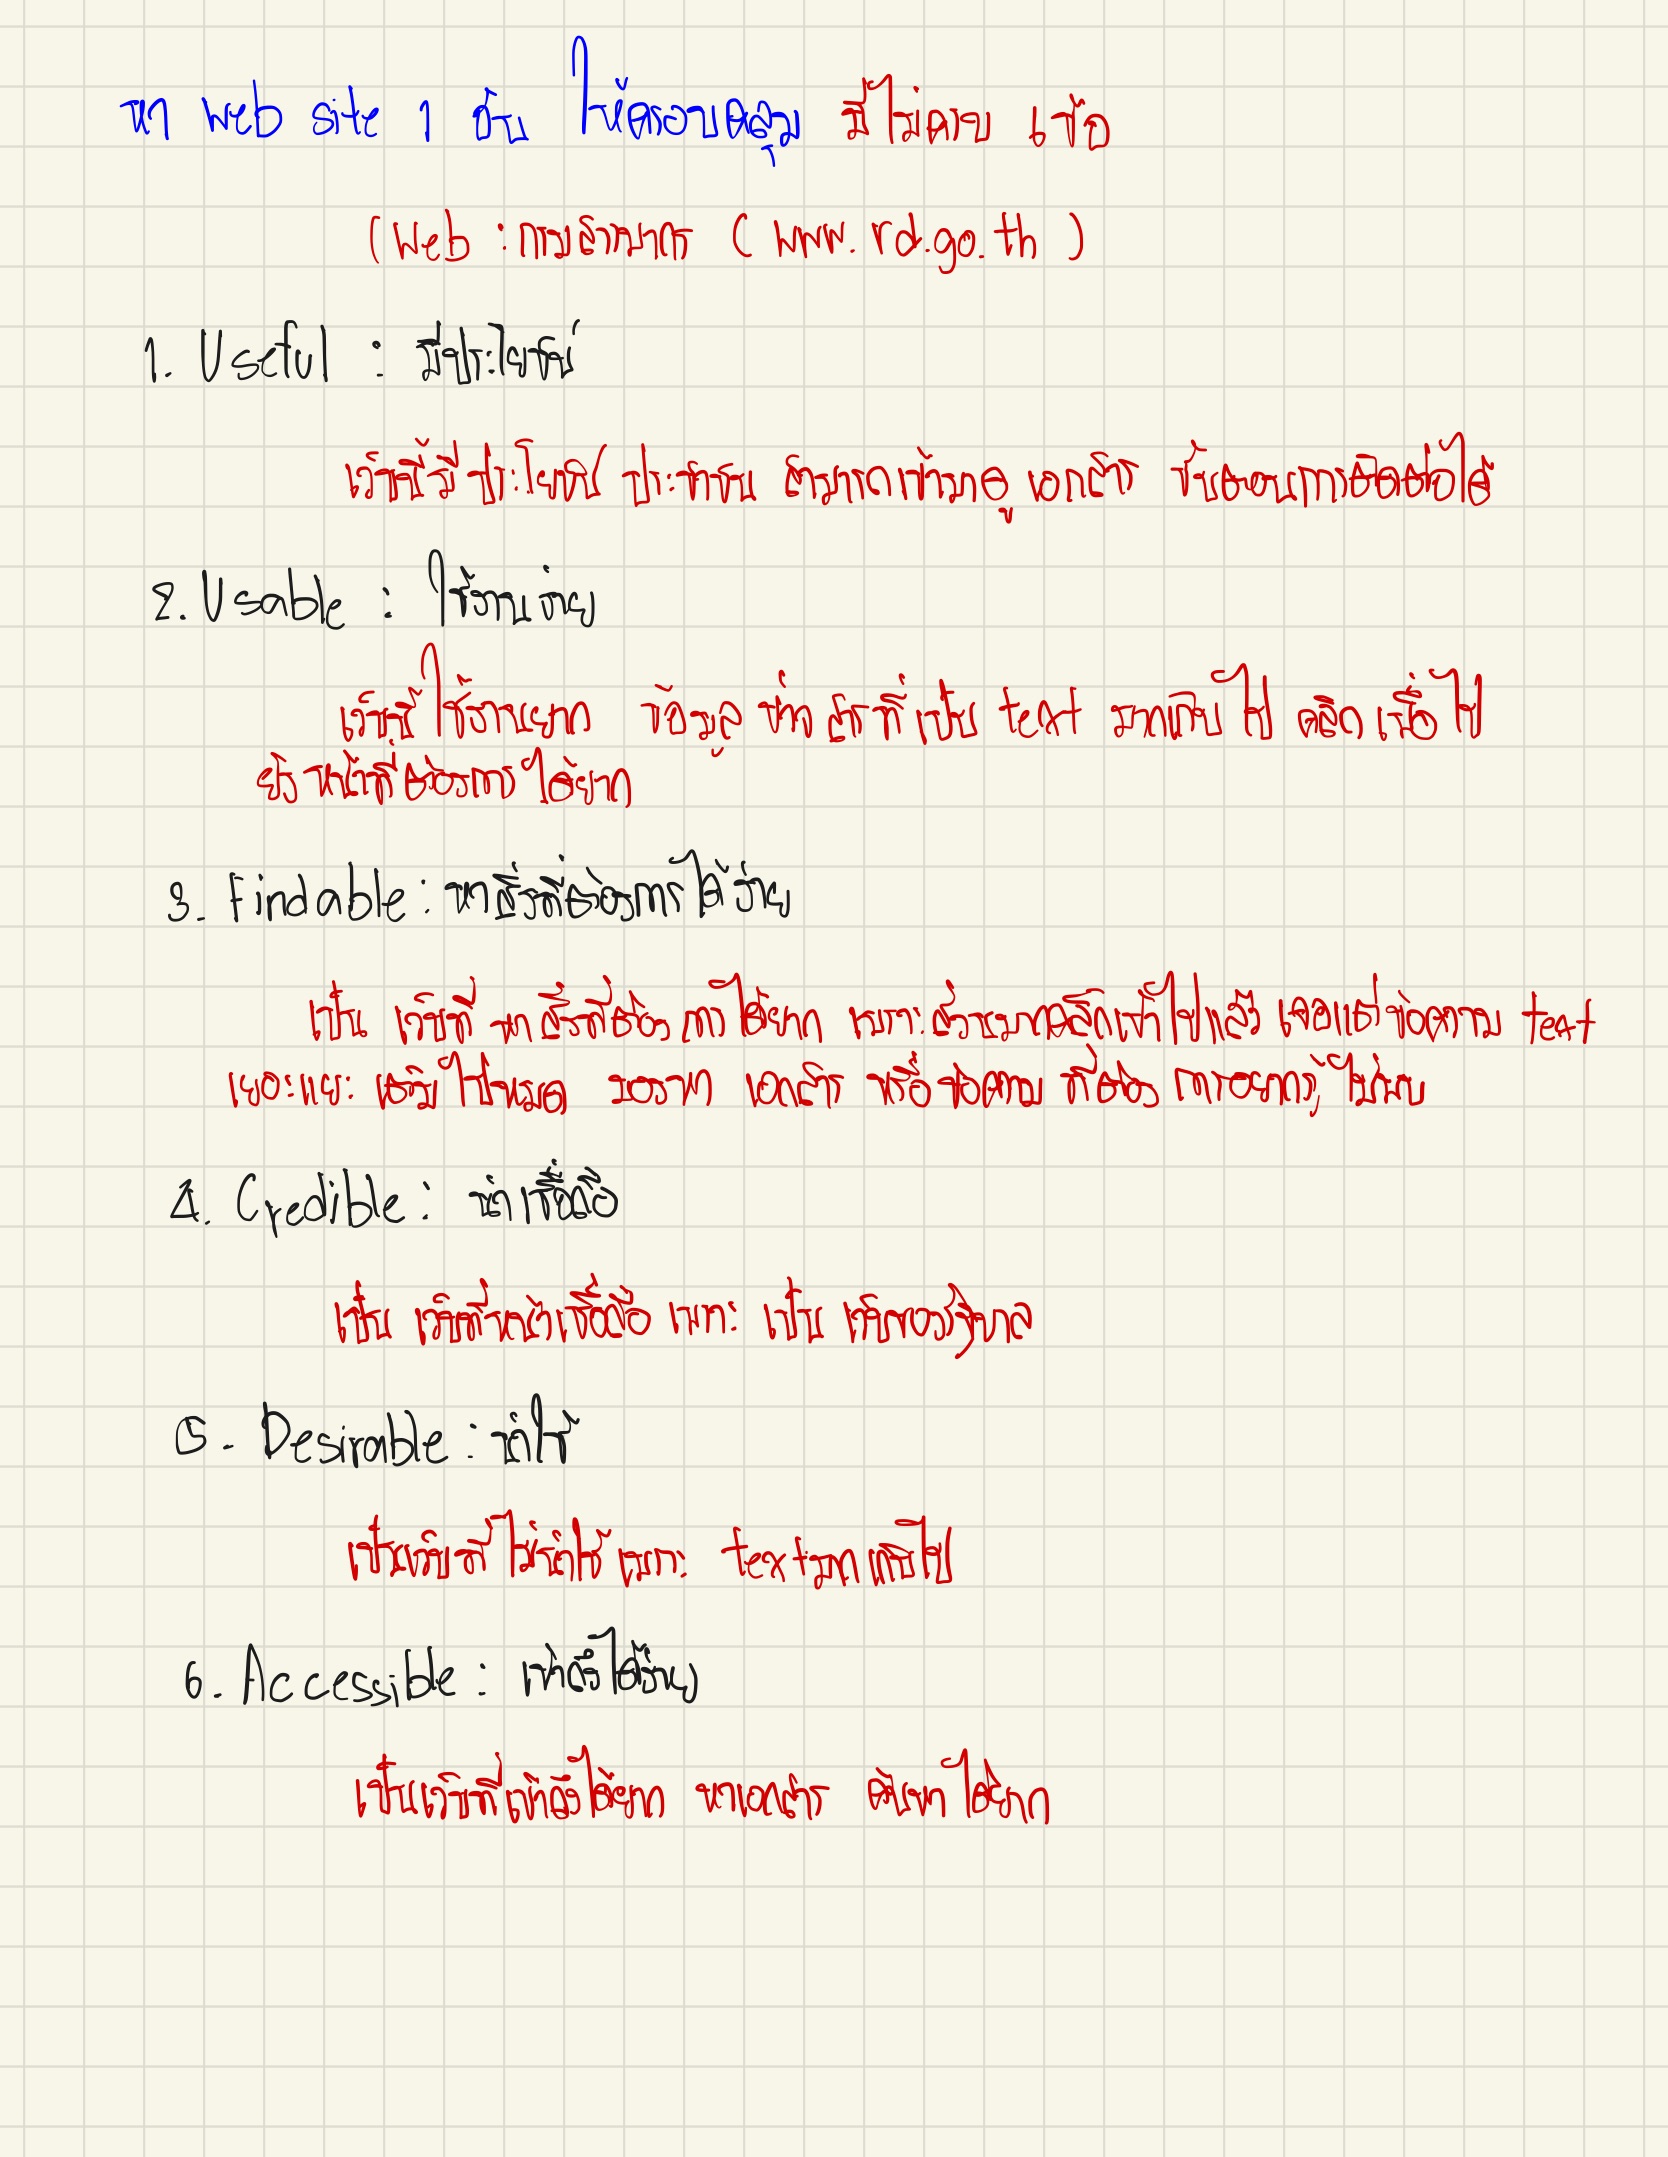 หา web site 1 อัน ให้ครอบคลุม มีไม่ครบ 6 ข้อ
(Web : กรมสรรพากร ( www.rd.go.th )
1. Useful : มีประโยชน์
เว็บนี้มี ประโยชน์ ประชาชน สามารถเข้ามาดู เอกสาร ขั้นตอนการติดต่อได้
2. Usable : ใช้งานง่าย
เว็บนี้ ใช้งานยาก ข้อมูล ข่าว สารที่เป็น text มากเกินไป คลิก เพื่อไป
ยัง หน้าที่ต้องการ ได้ยาก
3. Findable : หาสิ่งที่ต้องการได้ง่าย
เป็น เว็บที่ หา สิ่งที่ต้อง การได้ยาก เพราะ ส่วนมากคลิกเข้าไปแล้ว เจอแต่ข้อความ text
เยอะแยะ เต็มไปหมด มองหา เอกสาร หรือ ข้อความ ที่ต้อง การอยากรู้ ไม่พบ
4. Credible : น่าเชื่อถือ
เป็น เว็บที่หน้าเชื่อถือ เพราะ เป็น เว็บของรัฐบาล
5. Desirable : น่าใช้
เป็นเว็บที่ ไม่น่าใช้ เพราะ textมากเกินไป
6. Accessible : เข้าถึงได้ง่าย
เป็นเว็บที่เข้าถึงได้ยาก หาเอกสาร ค้นหา ได้ยาก